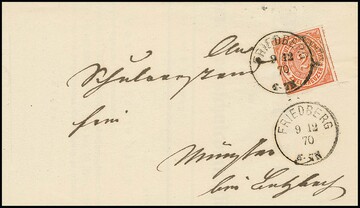 An
Schulvorstan
frei
Münster
bei Butzbach
FRIEDBERG
9 12
70
6-7N
FRIEDBERG
9 12
70